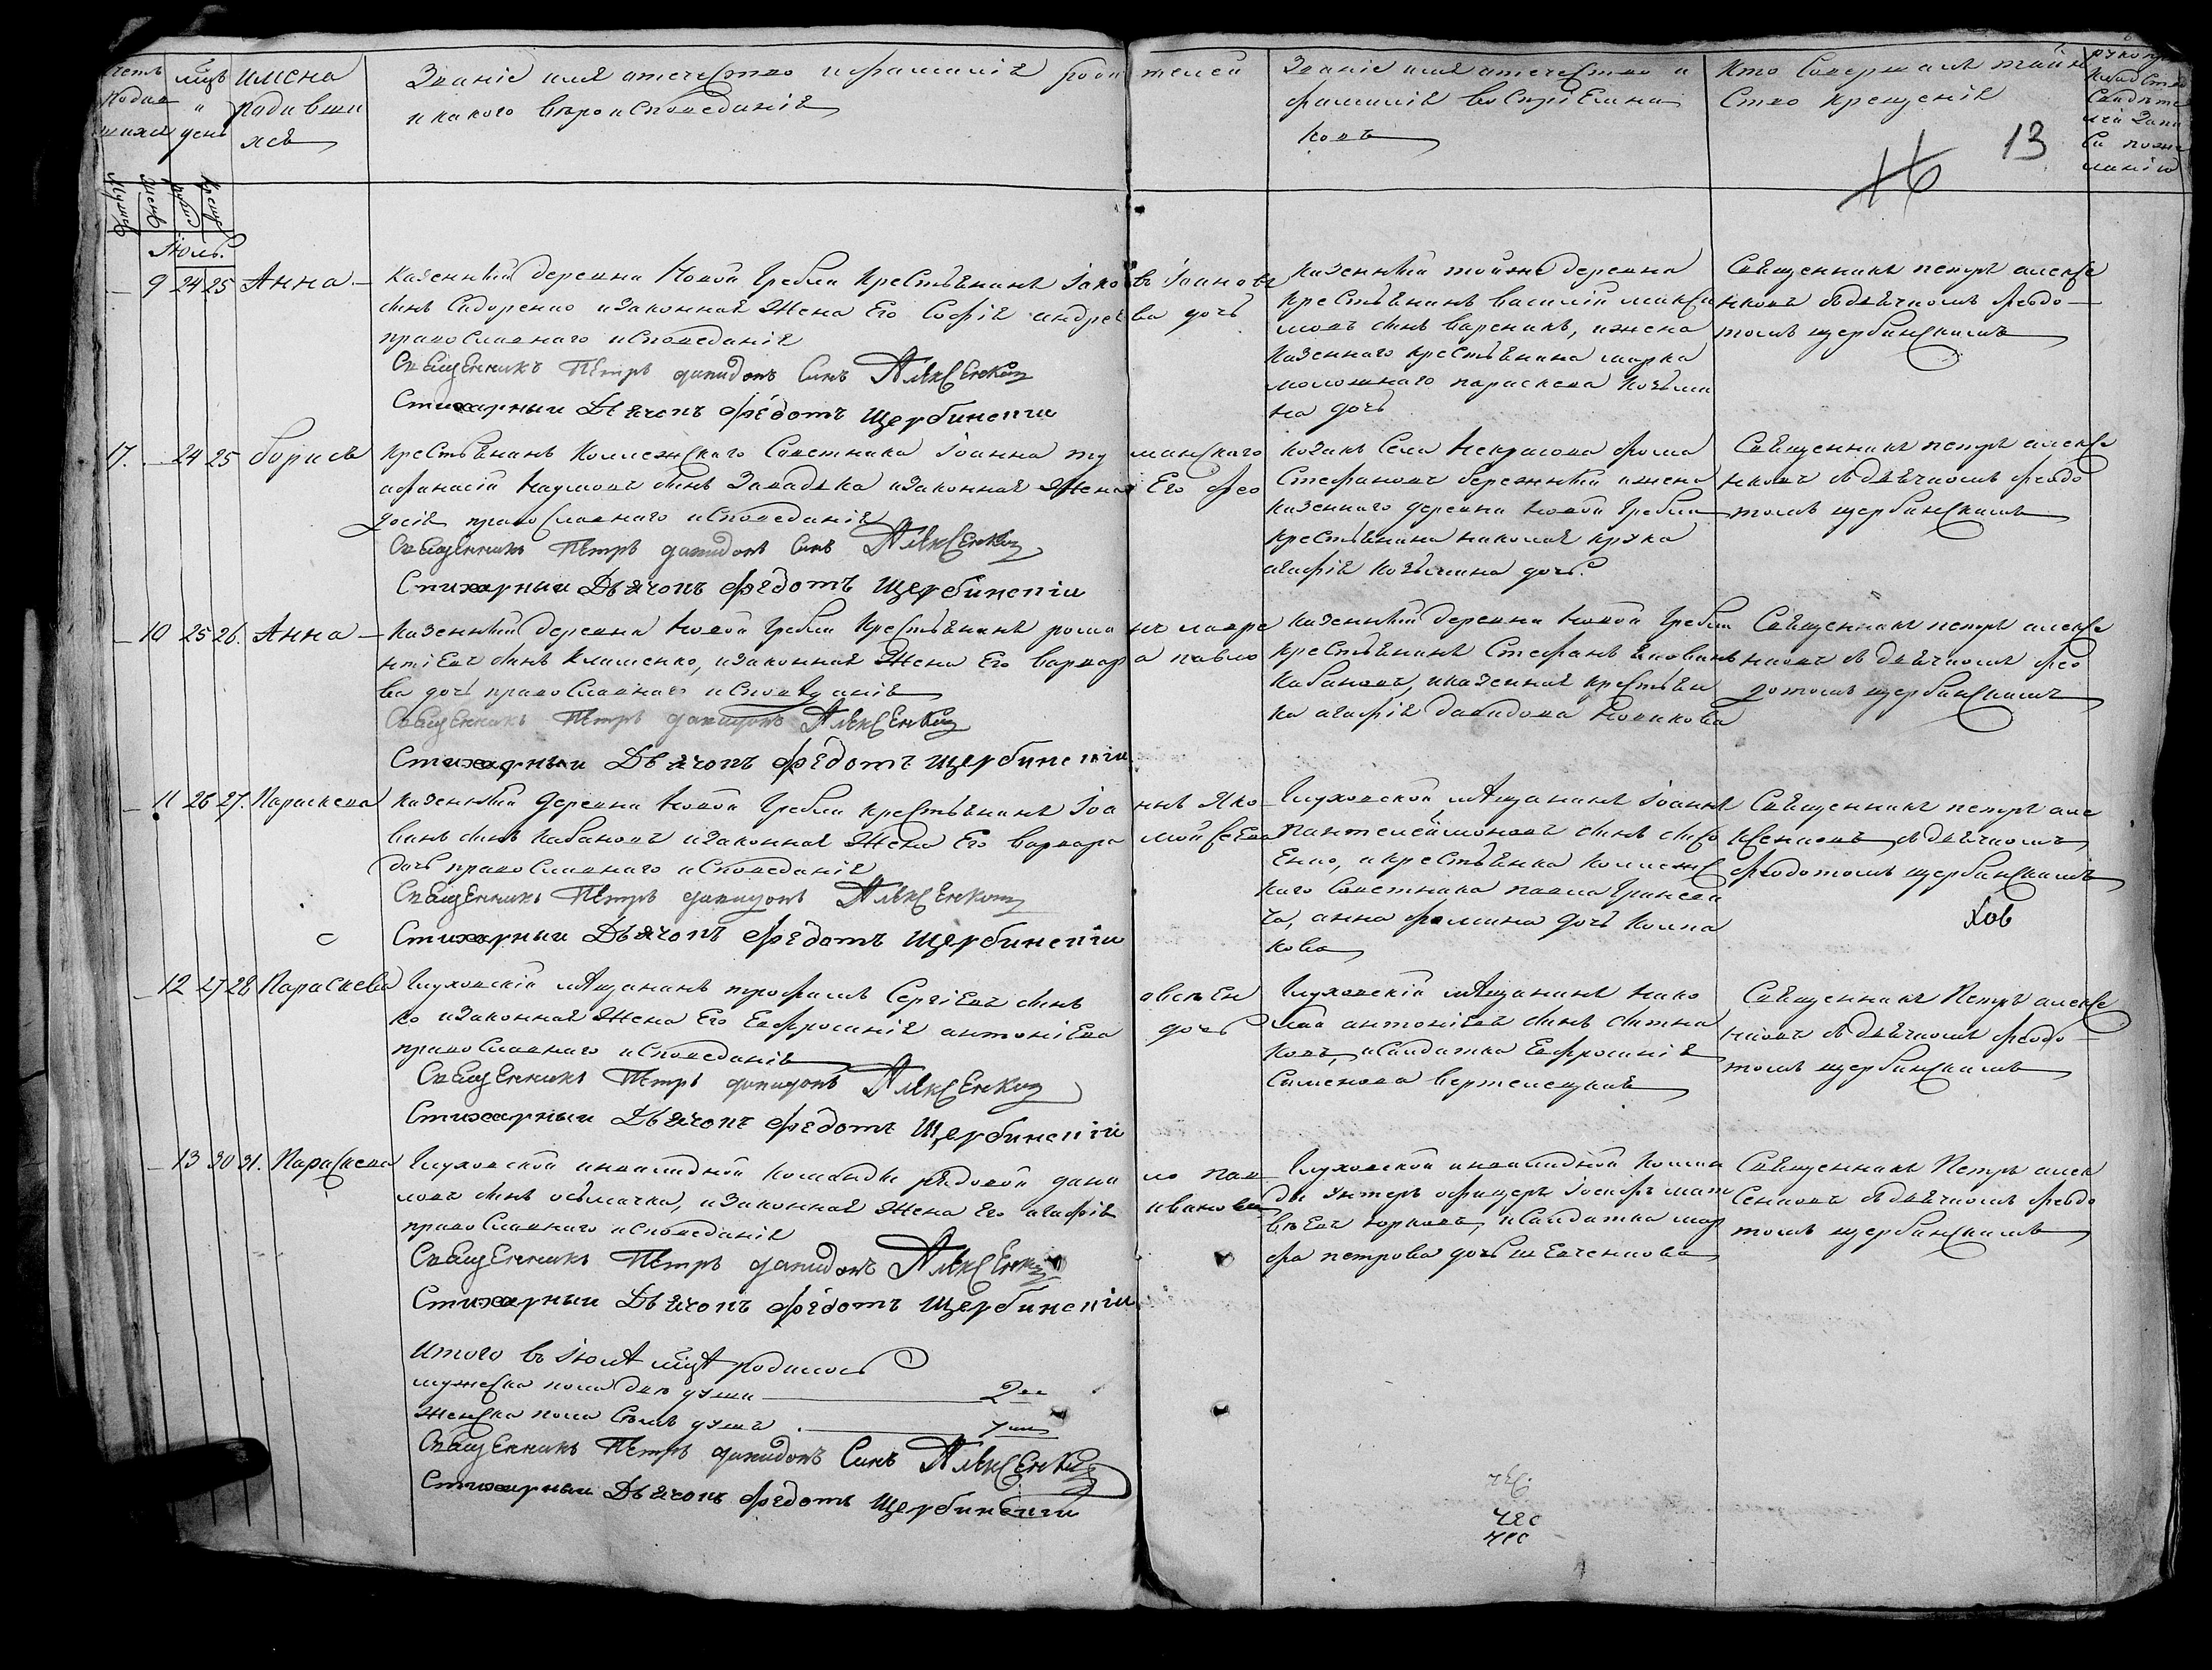 Счетъ родившихся
мцъ и день
имена родившихся
Званіе имя отечество ифамилія родителей
и какого вѣроисповеданія
Званіе имя отечество и
фамилія воспріемниковъ
Кто Совершалъ таин
Ство крещенія
13
16
Іюль.
9 24 25 Анна
казенный деревни Новой Гребли крестьянинъ Іаковъ Іоановъ
Синъ Сидоренко изаконная Жена Его Софія андреева дочь
православнаго исповеданія
Священникъ Петръ давидовъ Синъ Алексенковъ
Стихарный Дьячокъ Федотъ Щербинскій
Казенный тойже деревни
крестьянинъ василій макси
мовъ Синъ вареникъ, ижена
казеннаго крестьянина марка
параскева козьми
на дочь
Священникъ петръ алексе
нковъ сдьячкомъ федо
томъ щербинскимъ
17. 24 25 борисъ
крестьянинъ Коллежскаго Советника Іоанна туманскаго
афанасій наумовъ Синъ Завадька изаконная Жена Его фео
досія православнаго исповеданія
Священникъ Петръ давидовъ Синъ Алексенковъ
Стихарный Дьячокъ Федотъ Щербинскій
козакъ Села Некрасова фома
Стефановъ бережный ижена
казеннаго деревни новой Гребли
крестьянина николая крука
агафія козьмина дочь.
Священникъ петръ алексе
нковъ сдьячкомъ феодо
томъ щербинскимъ
10 25 26. Анна
казенный деревни новой Гребли крестьянинъ романъ лавре
нтіевъ Синъ Клименко, изаконная Жена Его варвара павло
ва дочь православнаго исповеданія
Священникъ Петръ давидовъ Алексенковъ
Стихарный Дьячокъ Федотъ Щербинскій
казенный деревни новой Гребли
крестьянинъ Стефанъ яковинъ
Кабановъ, иказенная крестьян
ка агафія давидова Новикова
Священникъ петръ алексе
нковъ сдьячкомъ фео
дотомъ щербинскимъ
11 26 27. Параскева
казенный деревни новой Гребли крестьянинъ Іоаннъ Яко
винъ Синъ Кабановъ изаконная Жена Его варвара мойсеева
дочь православнаго исповеданія
Священникъ Петръ давидовъ Алексенковъ
Стихарный Дьячокъ Федотъ Щербинскій
Глуховской мѣщанинъ Іоаннъ
Пантелеймоновъ Синъ
икрестьянка коллежс
каго Советника павла
анна фомина дочь Колпа
кова
Священникъ петръ але
ксенковъ сдьячкомъ
феодотомъ щербинскимъ
12 27 28 Параскева
Глуховскій мѣщанинъ трофимъ Сергіевъ Синъ овсіен
ко изаконная Жена Его Евфросинія антоніева дочь
православнаго исповеданія
Священникъ Петръ давидовъ Алексенковъ
Стихарный Дьячокъ Федотъ Щербинскій
Глуховскій мѣщанинъ нико
лай антоніевъ Синъ Ситни
ковъ, исалдатка Евфросинія
Сименова
Священникъ Петръ алексе
нковъ сдьячкомъ феодо
томъ щербинскимъ
13 30 31. Параскева
Глуховской инвалидной команды рядовой данило пав
ловъ Синъ осьмачка, изаконная Жена Его агафія иванова
православнаго исповеданія
Священникъ Петръ давидовъ Алексенковъ
Стихарный Дьячокъ Федотъ Щербинскій
Глуховской инвалидной коман
ды унтеръ офицеръ Іосифъ мат
вѣевъ юрковъ, исалдатка мар
фа петрова дочь шевченкова
Священникъ Петръ алек
сенковъ сдьячкомъ феодо
томъ щербинскимъ
Итого въ іюлѣ мцѣ родилось
мужеска пола двѣ души 2
Женска пола Семъ душъ 7
Священникъ Петръ давидовъ Синъ Алексенковъ
Стихарный Дьячокъ Федотъ Щербинскій